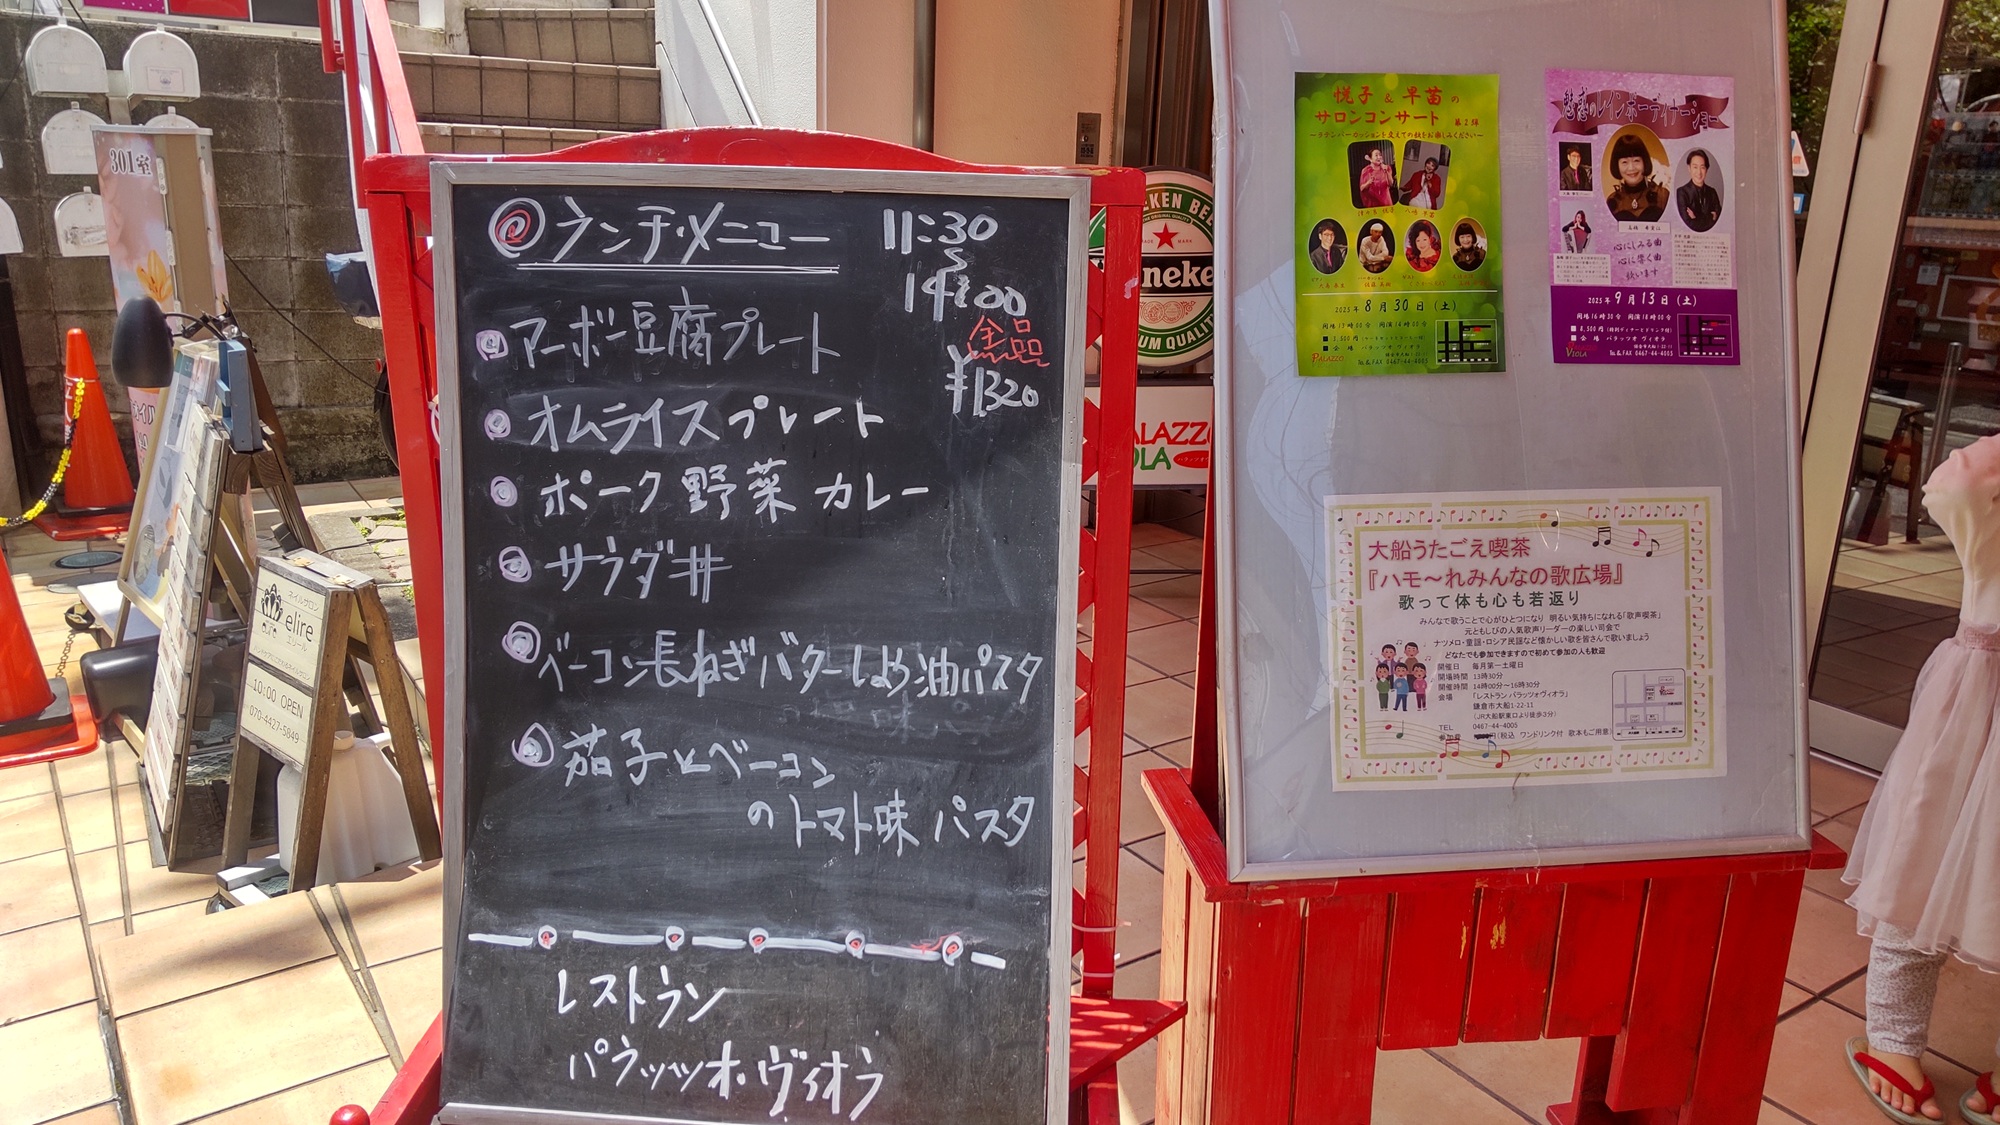 ランチ・メニュー
11:30
〜
14:00
全品
¥1320
マーボー豆腐プレート
オムライスプレート
ポーク野菜カレー
サラダ丼
ベーコン長ねぎバターしょう油パスタ
茄子とベーコン
のトマト味パスタ
レストラン
パラッツオ・ヴィオラ
悦子&早苗の
サロンコンサート 第2弾
2025年8月30日(土)
開場13時00分 開演14時00分
■ 3,500円
■ 会場 パラッツオ ヴィオラ
PALAZZO
TEL&FAX 0467-44-4005
魅惑のレインボーディナーショー
心にしみる曲
心に響く曲
歌います
2025年9月13日(土)
開場16時30分 開演18時00分
■ 8,500円
■ 会場 パラッツオ ヴィオラ
VIOLA
TEL&FAX 0467-44-4005
大船うたごえ喫茶
『ハモ〜れみんなの歌広場』
歌って体も心も若返り
みんなで歌うことで心がひとつになり 明るい気持ちになれる「歌声喫茶」
元ともしびの人気歌声リーダーの楽しい司会で
ナツメロ・童謡・ロシア民謡など懐かしい歌を皆さんで歌いましょう
どなたでも参加できますので初めて参加の人も歓迎
開催日 毎月第一土曜日
開場時間 13時30分
開催時間 14時00分〜16時30分
会場 「レストラン パラッツォヴィオラ」
鎌倉市大船1-22-11
(JR大船駅東口より徒歩3分)
TEL 0467-44-4005
参加費 円(税込 ワンドリンク付 歌本もご用意)
301室
ネイルサロン
elire
エリール
10:00 OPEN
070-4427-5849
KEN BE
neke
UM QUALITY
ALAZZO
OLA